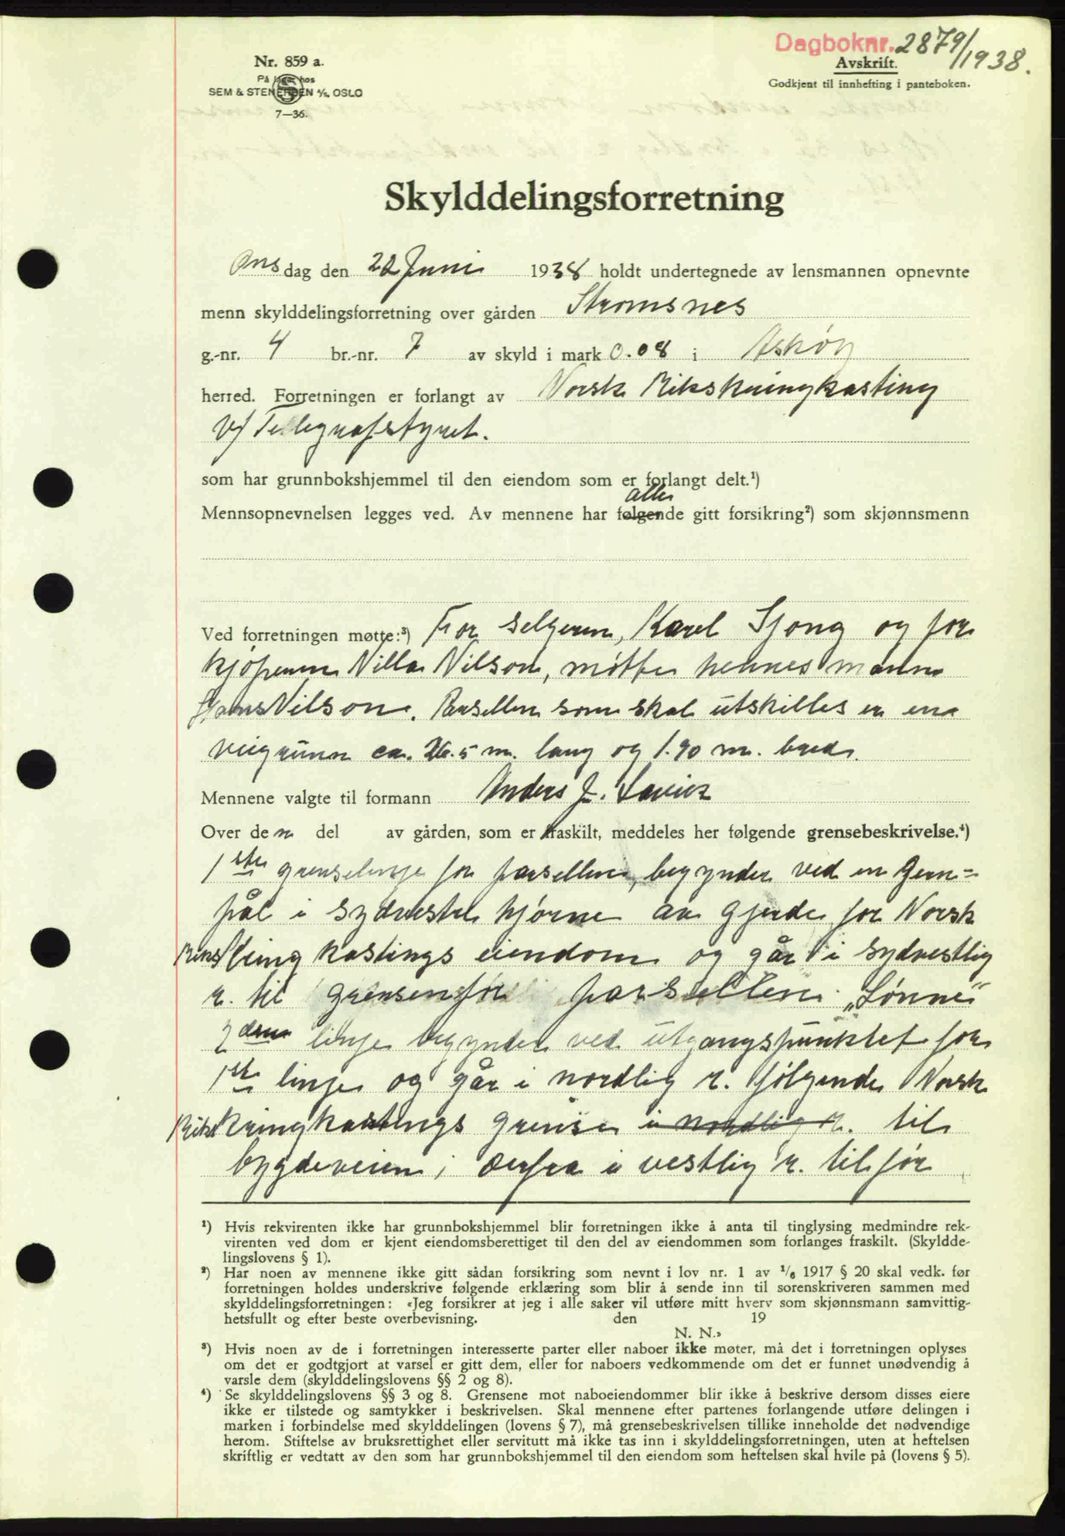 Dagboknr. 2879/1938.
Nr. 859 a.
På lager hos
SEM & STENERSEN A/S, OSLO
7—36.
Avskrift.
Godkjent til innhefting i panteboken.
Skylddelingsforretning
Onsdag den 22 Juni 1938 holdt undertegnede av lensmannen opnevnte
menn skylddelingsforretning over gården Strømsnes
g.-nr. 4 br.-nr. 7 av skyld i mark 0.08 i Askøy
herred. Forretningen er forlangt av Norsk Rikskringkasting
v/ Telegrafstyret.
som har grunnbokshjemmel til den eiendom som er forlangt delt.¹)
alle
Mennsopnevnelsen legges ved. Av mennene har følgende gitt forsikring²) som skjønnsmenn
Ved forretningen møtte:³) For selgeren, Karel Sjong og for
kjøperen Villa Nilson, møtte hennes mann
Hans Nilson. Parsellen som skal utskilles er en
veigrunn ca. 26.5 m. lang og 1.90 m. bred.
Mennene valgte til formann Anders J.
Over den del av gården, som er fraskilt, meddeles her følgende grensebeskrivelse.⁴)
1ste grenselinje for parsellen, begynder ved en Jern=
pål i sydvestre hjørne av gjerde for Norsk
Rikskringkastings eiendom og går i sydvestlig
r. til grensen for parsellen „Lønne"
2den linje begynder ved utgangspunktet for
1ste linje og går i nordlig r. følgende Norsk
Rikskringkastings grense i nordlig r. til
bygdeveien, derfra i vestlig r. til før
¹) Hvis rekvirenten ikke har grunnbokshjemmel blir forretningen ikke å anta til tinglysing medmindre rek-
virenten ved dom er kjent eiendomsberettiget til den del av eiendommen som forlanges fraskilt. (Skyldde-
lingslovens § 1).
²) Har noen av mennene ikke gitt sådan forsikring som nevnt i lov nr. 1 av ¹/₆ 1917 § 20 skal vedk. før
forretningen holdes underskrive følgende erklæring som blir å sende inn til sorenskriveren sammen med
skylddelingsforretningen: «Jeg forsikrer at jeg i alle saker vil utføre mitt hverv som skjønnsmann samvittig-
hetsfullt og efter beste overbevisning. den 19
N. N.»
³) Hvis noen av de i forretningen interesserte parter eller naboer ikke møter, må det i forretningen oplyses
om det er godtgjort at varsel er gitt dem, eller for naboers vedkommende om det er funnet unødvendig å
varsle dem (skylddelingslovens §§ 2 og 8).
⁴) Se skylddelingslovens §§ 3 og 8. Grensene mot naboeiendommer blir ikke å beskrive dersom disses eiere
ikke er tilstede og samtykker i beskrivelsen. Skal mennene efter partenes forlangende utføre delingen i
marken i forbindelse med skylddelingen (lovens § 7), må grensebeskrivelsen tillike inneholde det nødvendige
herom. Stiftelse av bruksrettighet eller servitutt må ikke tas inn i skylddelingsforretningen, uten at heftelsen
skriftlig er vedtatt av den som har grunnbokshjemmel til den eiendom som heftelsen skal hvile på (lovens § 5).